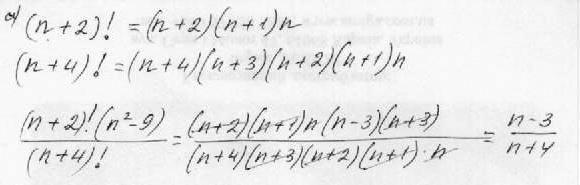 a) (n+2)! = (n+2)(n+1)n
(n+4)! = (n+4)(n+3)(n+2)(n+1)n
(n+2)!(n²-9)/(n+4)! = (n+2)(n+1)n(n-3)(n+3)/(n+4)(n+3)(n+2)(n+1)·n = n-3/n+4